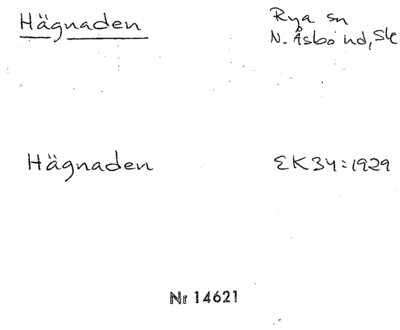 Hägnaden
Rya sn
N. Åsbo hd, Sk
Hägnaden
EK34:1929
Nr 14621